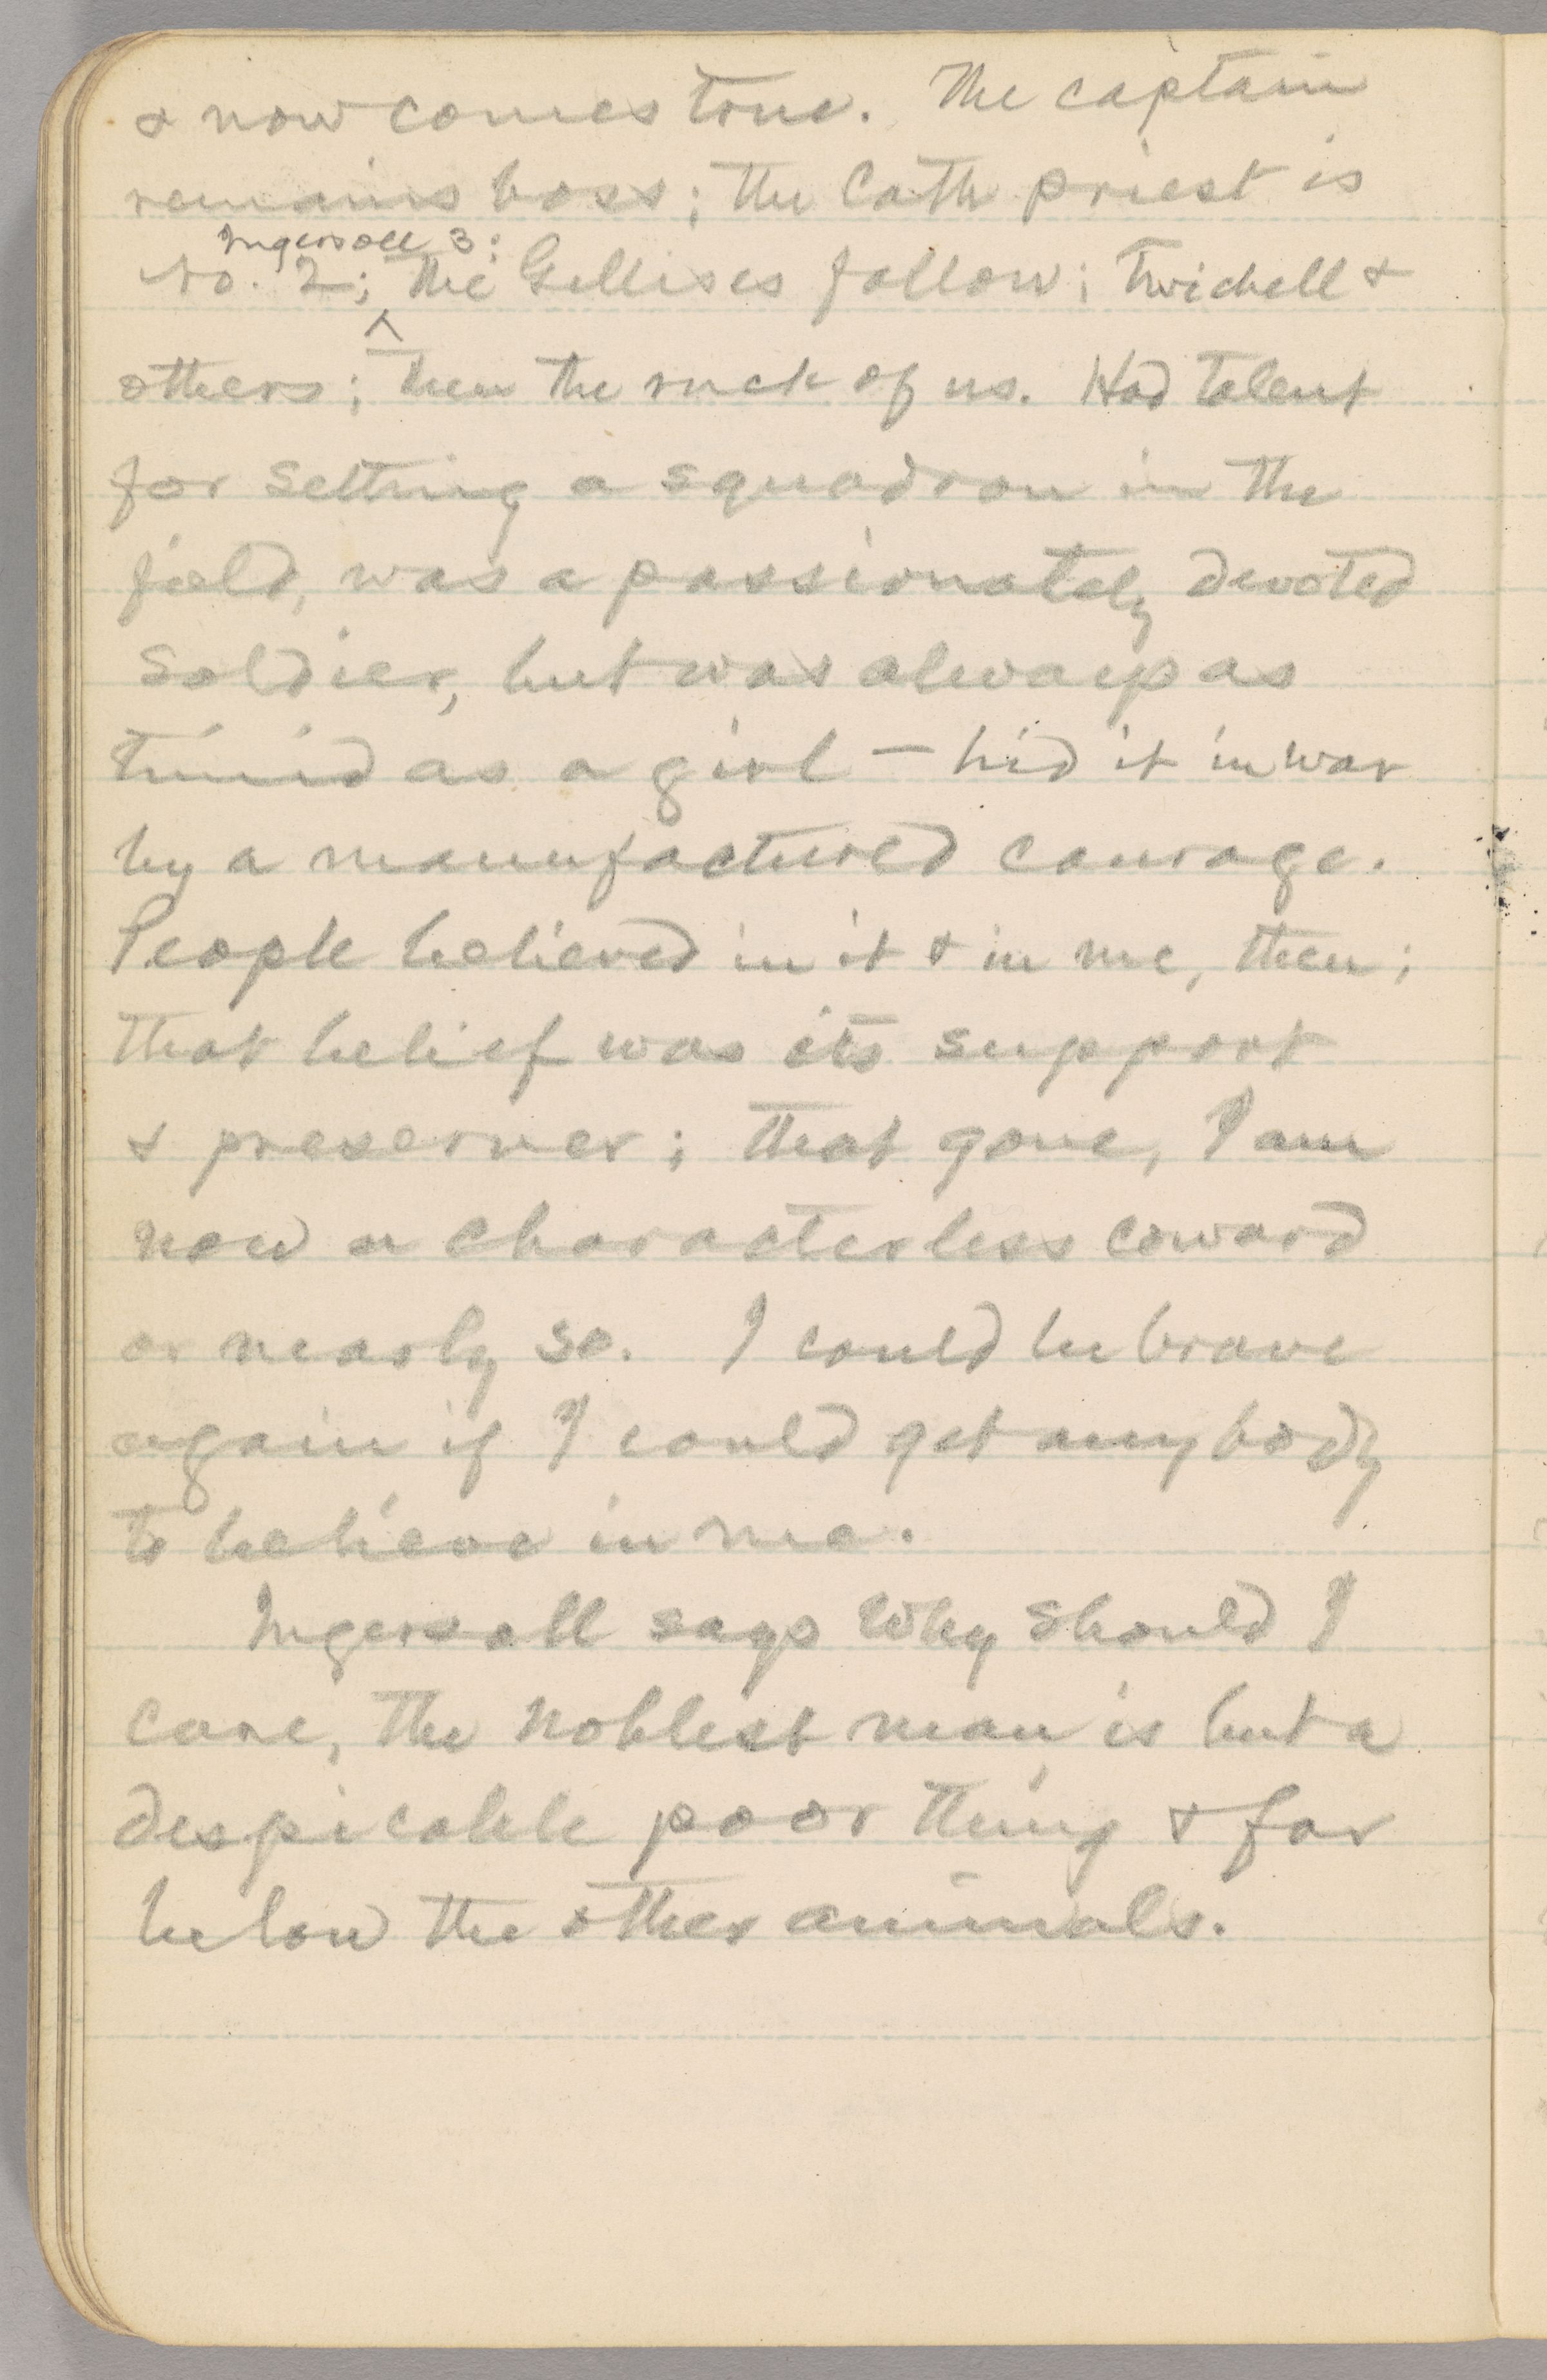 & now comes true. The captain
remains boss; the Cath priest is
Ingersoll 3;
No. 2; the Gillises follow; Twichell &
others; then the ruck of us. Had talent
for setting a squadron in the
field, was a passionately devoted
soldier, but was always as
timid as a girl — hid it in war
by a manufactured courage.
People believed in it & in me, then;
that belief was its support
& preserver; that gone, I am
now a characterless coward
or nearly so. I could be brave
again if I could get anybody
to believe in me.
Ingersoll says Why should I
care, the noblest man is but a
despicable poor thing & far
below the other animals.